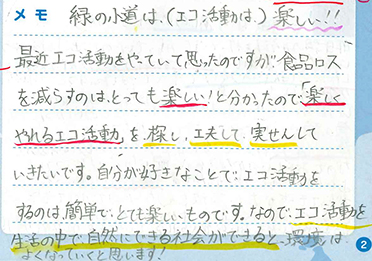 メモ 緑の小道は、(エコ活動は、)楽しい!!
最近エコ活動をやっていて思ったのですが、食品ロス
を減らすのは、とっても楽しい!と分かったので、「楽しく
やれるエコ活動」を探し、工夫して、実せんして
いきたいです。自分が好きなことで、エコ活動を
するのは、簡単で、とても楽しいものです。なので、エコ活動を
生活の中で、自然にできる社会ができると、環境は、
よくなっていくと思います!
2